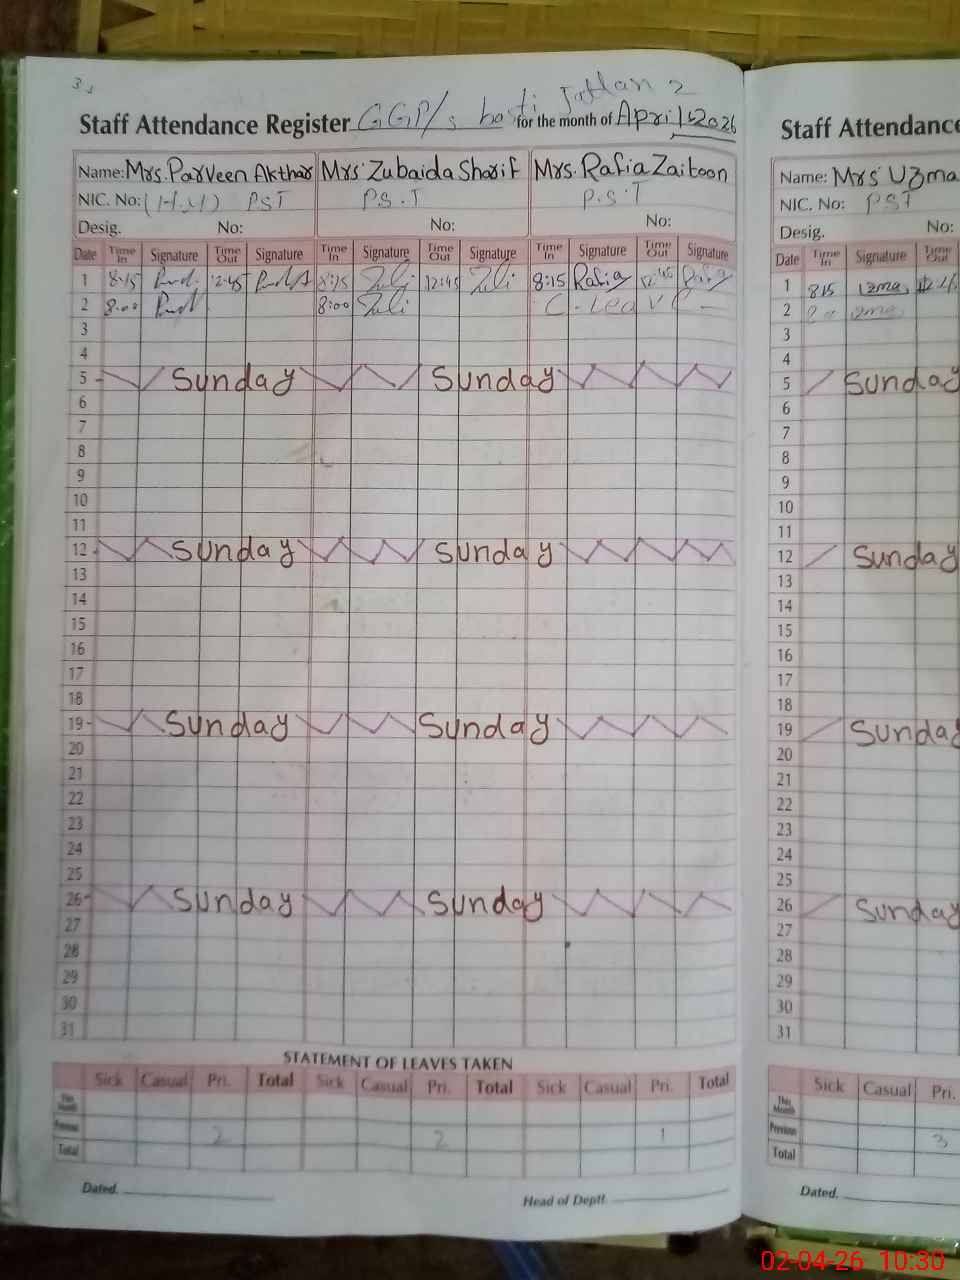 Staff Attendance Register GGP/s basti Jattan 2 for the month of April 2026
Name: Mrs. Parveen Akthar Mrs Zubaida Sharif Mrs. Rafia Zaitoon
NIC. No: (H.M) PST P.S.T P.S.T
Desig. No: No: No:
Date Time In Signature Time Out Signature Time In Signature Time Out Signature Time In Signature Time Out Signature
1 8:15 12:45 8:15 12:45 8:15 Rafia 12:45 Rafia
2 8:00 8:00 C-Leave
3
4
5 Sunday Sunday
6
7
8
9
10
11
12 Sunday Sunday
13
14
15
16
17
18
19 Sunday Sunday
20
21
22
23
24
25
26 Sunday Sunday
27
28
29
30
31
STATEMENT OF LEAVES TAKEN
Sick Casual Pri. Total Sick Casual Pri. Total Sick Casual Pri. Total
This Month
Previous 2 2 1
Total
Dated. Head of Deptt.
Staff Attendance
Name: Mrs Uzma
NIC. No: PST
Desig. No:
Date Time In Signature Time Out
1 815 Uzma
2
3
4
5 Sunday
6
7
8
9
10
11
12 Sunday
13
14
15
16
17
18
19 Sunday
20
21
22
23
24
25
26 Sunday
27
28
29
30
31
Sick Casual Pri.
This Month
Previous 3
Total
Dated.
02-04-26 10:30